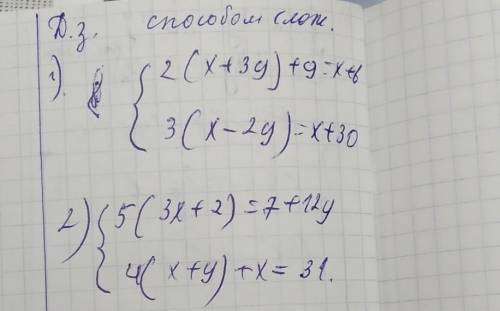 Д.з. способом слож.
1). { 2(x+3y)+9=x+6
3(x-2y)=x+30
2) { 5(3x+2)=7+12y
4(x+y)+x=31.